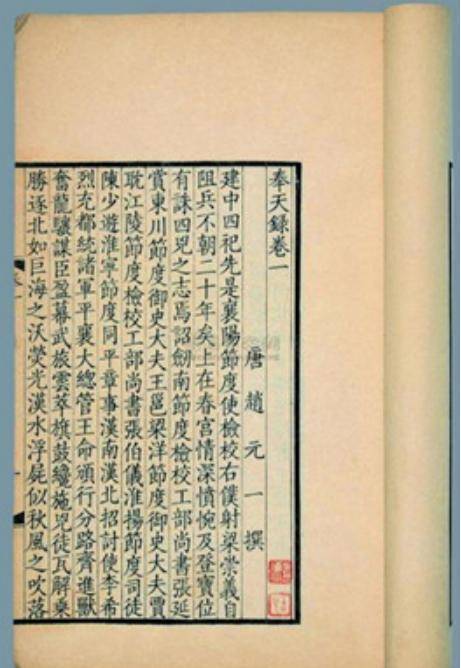 奉天錄卷一
唐趙元一撰
建中四祀先是襄陽節度使檢校右僕射梁崇義自
阻兵不朝二十年矣上在春宮情深憤惋及登寶位
有誅四兇之志焉詔劒南節度檢校工部尚書張延
賞東川節度御史大夫王邕梁洋節度御史大夫賈
耽江陵節度檢校工部尚書張伯儀淮揚節度司徒
陳少遊淮寧節度同平章事漢南漢北招討使李希
烈充都統諸軍平襄大總管王命頒行分路齊進獸
奮龍驤謀臣盈幕武旅雲萃旗鼓纔施兇徒瓦解乗
勝逐北如巨海之沃熒光漢水浮屍似秋風之吹落